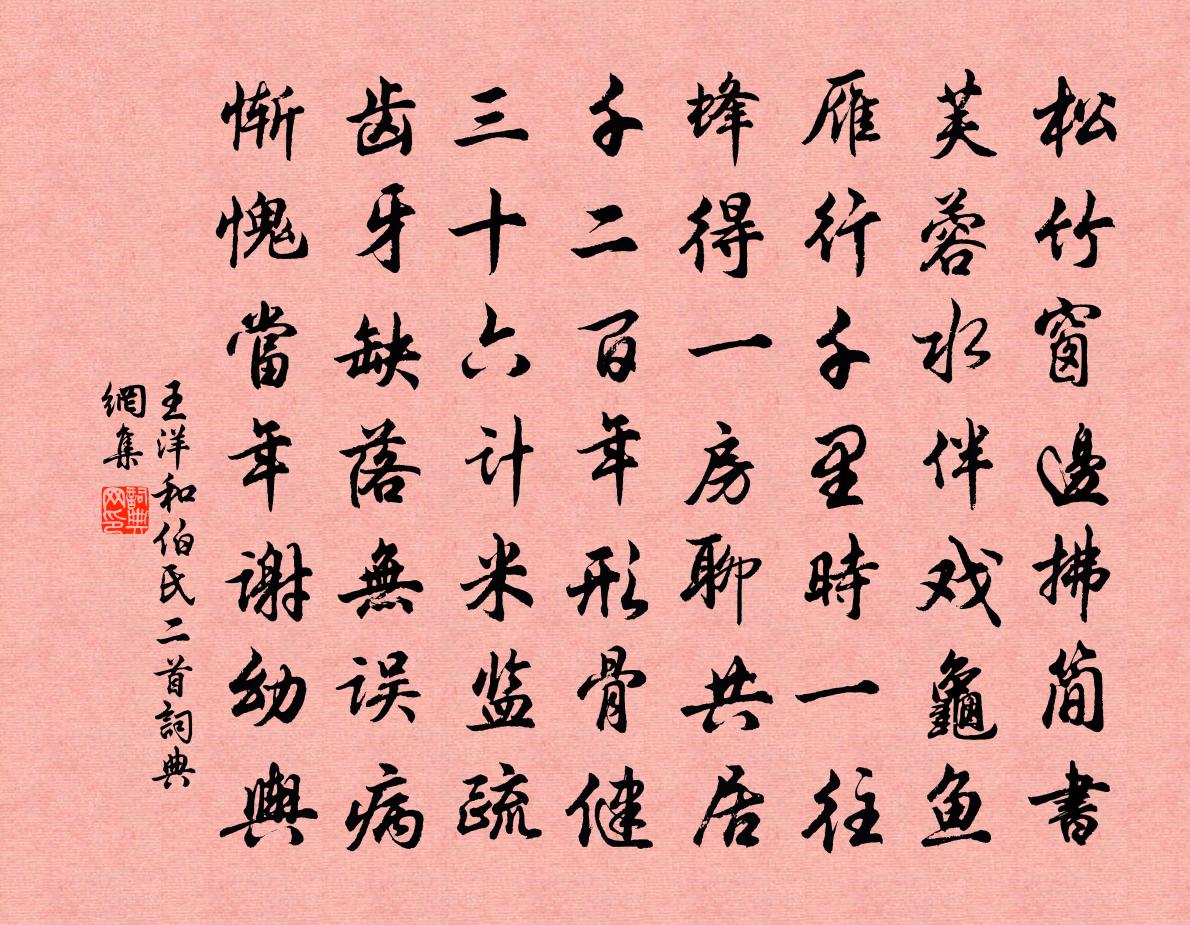 松竹窗邊拂简書
芙蓉水伴戏龜鱼
雁行千里時一往
蜂得一房聊共居
千二百年形骨健
三十六计米监疏
齿牙缺落無误病
惭愧當年谢幼輿
王洋和伯氏二首詞典
網集
詞典网印